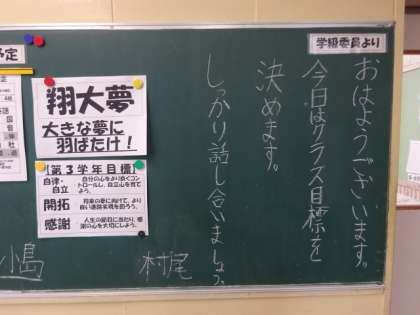 学級委員より
おはようございます。
今日はクラス目標を
決めます。
しっかり話し合いましょう。
翔大夢
大きな夢に
羽ばたけ！
【第3学年目標】
自律・
自立
自分の心をより良くコン
トロールし、自立心を育て
よう。
開拓
将来の夢に向けて、より
良い進路実現を図ろう。
感謝
人生の節目に当たり、感
謝の心を大切にしよう。
村尾
小島
予定